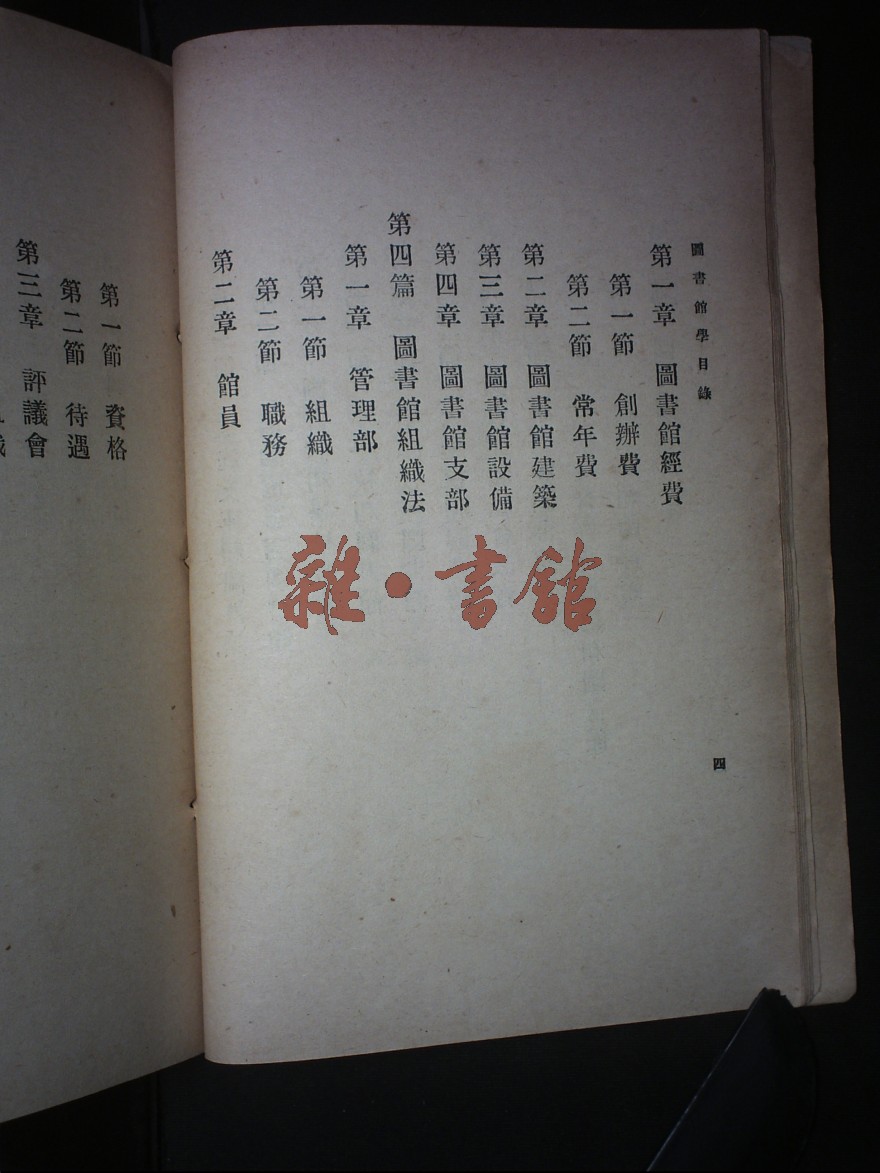 圖書館學目錄
第一章 圖書館經費
第一節 創辦費
第二節 常年費
第二章 圖書館建築
第三章 圖書館設備
第四章 圖書館支部
第四篇 圖書館組織法
第一章 管理部
第一節 組織
第二節 職務
第二章 館員
四
第一節 資格
第二節 待遇
第三章 評議會
雜·書館